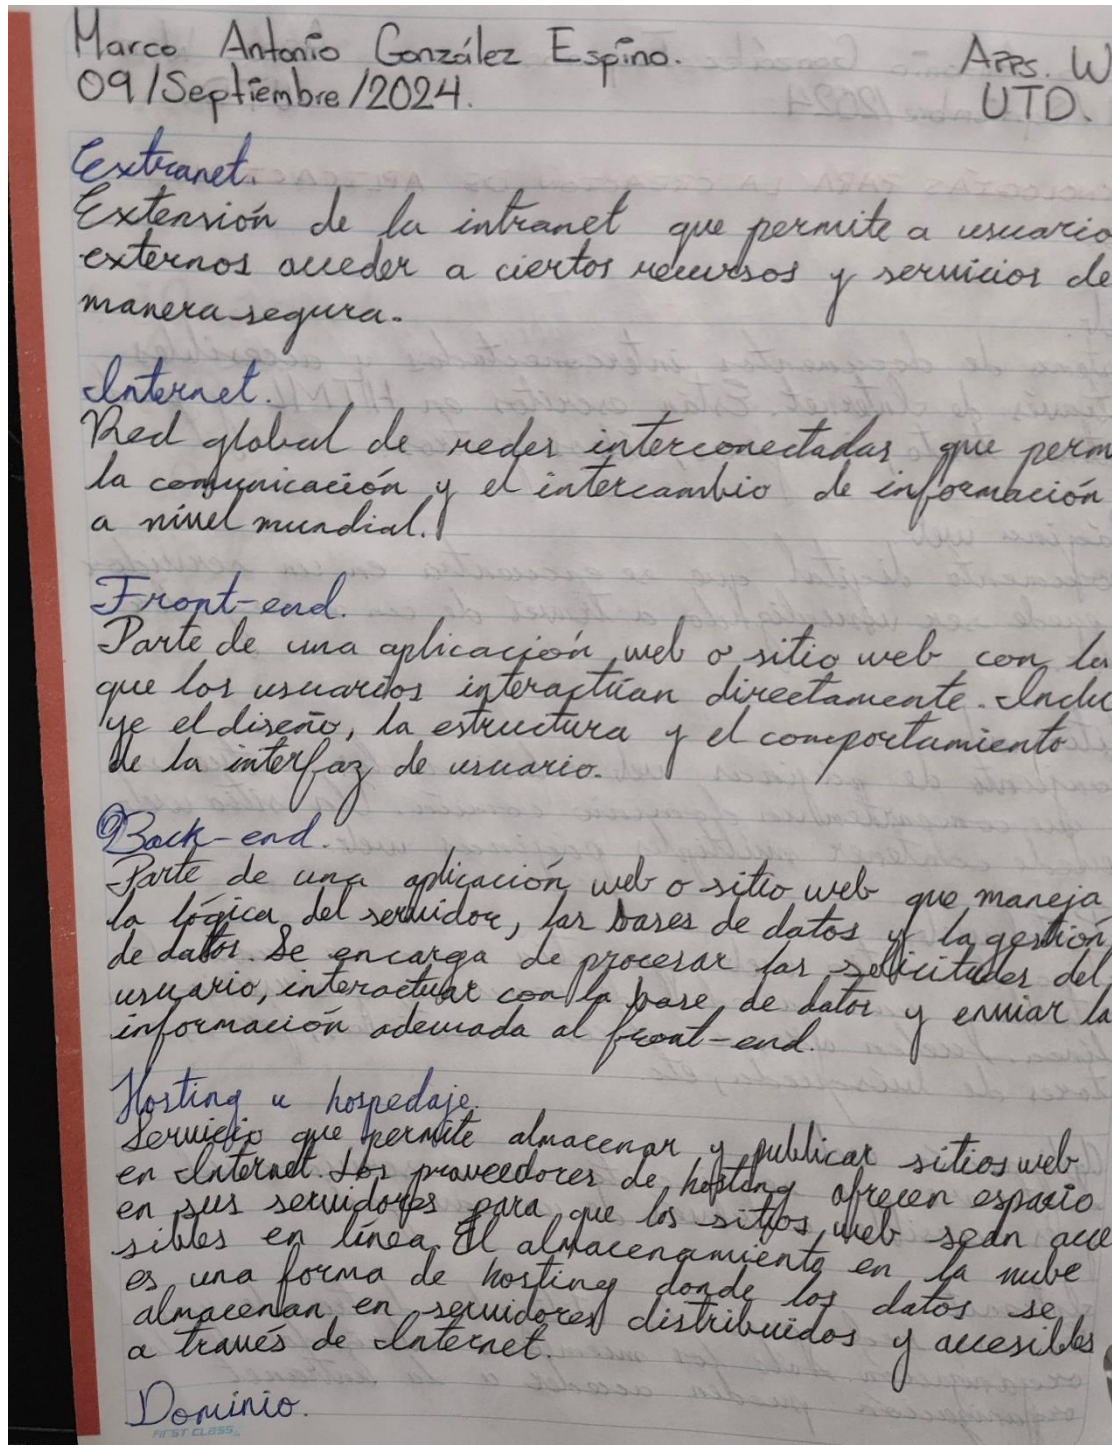 Marco Antonio González Espino. Apps. W
09/Septiembre/2024. UTD.
Extranet.
Extensión de la intranet que permite a usuario
externos acceder a ciertos recursos y servicios de
manera segura.
Internet.
Red global de redes interconectadas que perm
la comunicación y el intercambio de información
a nivel mundial.
Front-end.
Parte de una aplicación web o sitio web con la
que los usuarios interactúan directamente. Inclu
ye el diseño, la estructura y el comportamiento
de la interfaz de usuario.
Back-end.
Parte de una aplicación web o sitio web que maneja
la lógica del servidor, las bases de datos y la gestión
de datos. Se encarga de procesar las solicitudes del
usuario, interactuar con la base de datos y enviar la
información adecuada al front-end.
Hosting u hospedaje.
Servicio que permite almacenar y publicar sitios web
en Internet. Los proveedores de hosting ofrecen espacio
en sus servidores para que los sitios web sean acce
sibles en línea. El almacenamiento en la nube
es una forma de hosting donde los datos se
almacenan en servidores distribuidos y accesibles
a través de Internet.
Dominio.
FIRST CLASS